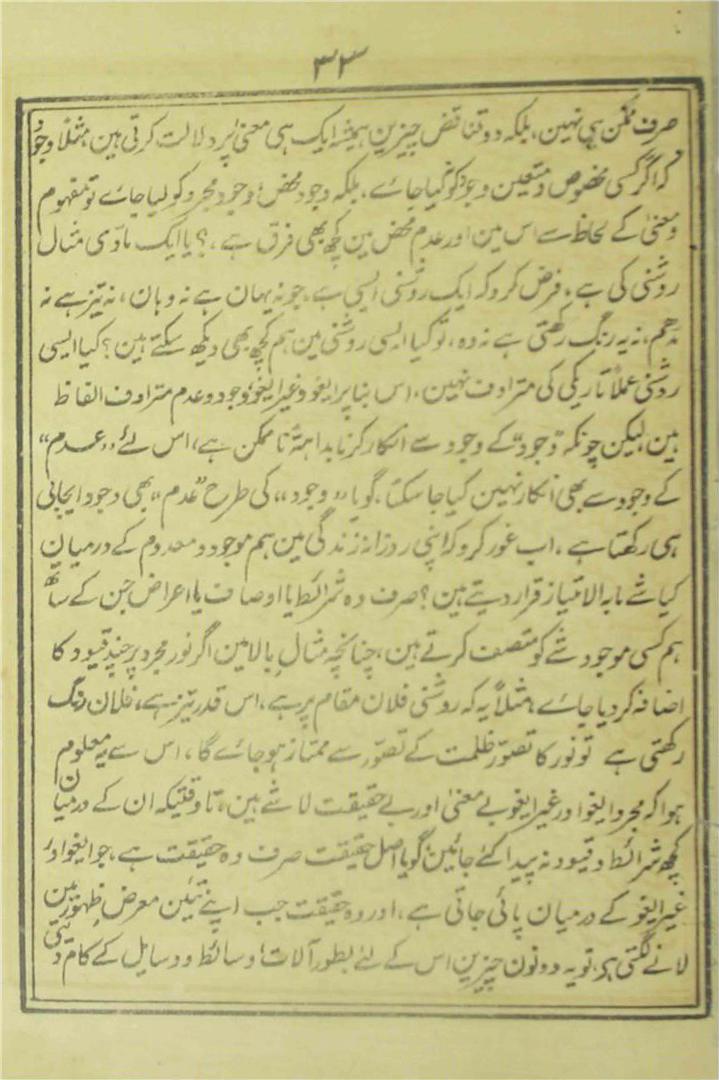 ۳۳
صرف ممکن ہی نہین، بلکہ دو تناقض چیزین ہمیشہ ایک ہی معنیٰ پر دلالت کرتی ہین، مثلاً وجود
کہ اگر کسی مخصوص و متعین وجود کو نہ لیا جائے، بلکہ وجود محض، وجود مجرد کو لیا جائے تو مفہوم
و معنیٰ کے لحاظ سے اس مین اور عدم محض مین کچھ بھی فرق ہے؟ یا ایک مادّی مثال
روشنی کی ہے، فرض کرو کہ ایک روشنی ایسی ہے، جو نہ یہان ہے نہ وہان، نہ تیز ہے نہ
مدھم، نہ یہ رنگ رکھتی ہے نہ وہ، تو کیا ایسی روشنی مین ہم کچھ بھی دیکھ سکتے ہین؟ کیا ایسی
روشنی عملاً تاریکی کی مترادف نہین، اس بنا پر ایغو و غیر ایغو، وجود و عدم مترادف الفاظ
ہین، لیکن چونکہ "وجود" کے وجود سے انکار کرنا بداہتہً نا ممکن ہے، اس لئے "عدم"
کے وجود سے بھی انکار نہین کیا جا سکتا، گویا "وجود" کی طرح "عدم" بھی وجود ایجابی
ہی رکھتا ہے، اب غور کرو کہ اپنی روزانہ زندگی مین ہم موجود و معدوم کے درمیان
کیا شے مابہ الامتیاز قرار دیتے ہین؟ صرف وہ شرائط یا اوصاف یا اعراض جن کے ساتھ
ہم کسی موجود شے کو متصف کرتے ہین، چنانچہ مثال بالا مین اگر نور مجرد پر چند قیود کا
اضافہ کر دیا جائے، مثلاً یہ کہ روشنی فلان مقام پر ہے، اس قدر تیز ہے، فلان رنگ
رکھتی ہے تو نور کا تصوّر ظلمت کے تصوّر سے ممتاز ہو جائے گا، اس سے یہ معلوم
ہوا کہ مجرد ایغو اور غیر ایغو بے معنیٰ اور بے حقیقت لا شے ہین، تا وقتیکہ ان کے درمیان
کچھ شرائط و قیود نہ پیدا کئے جائین، گویا اصل حقیقت صرف وہ حقیقت ہے، جو ایغو اور
غیر ایغو کے درمیان پائی جاتی ہے، اور وہ حقیقت جب اپنے تئین معرض ظہور مین
لانے لگتی ہے، تو یہ دونون چیزین اس کے لئے بطور آلات، وسائط و وسایل کے کام دیتی